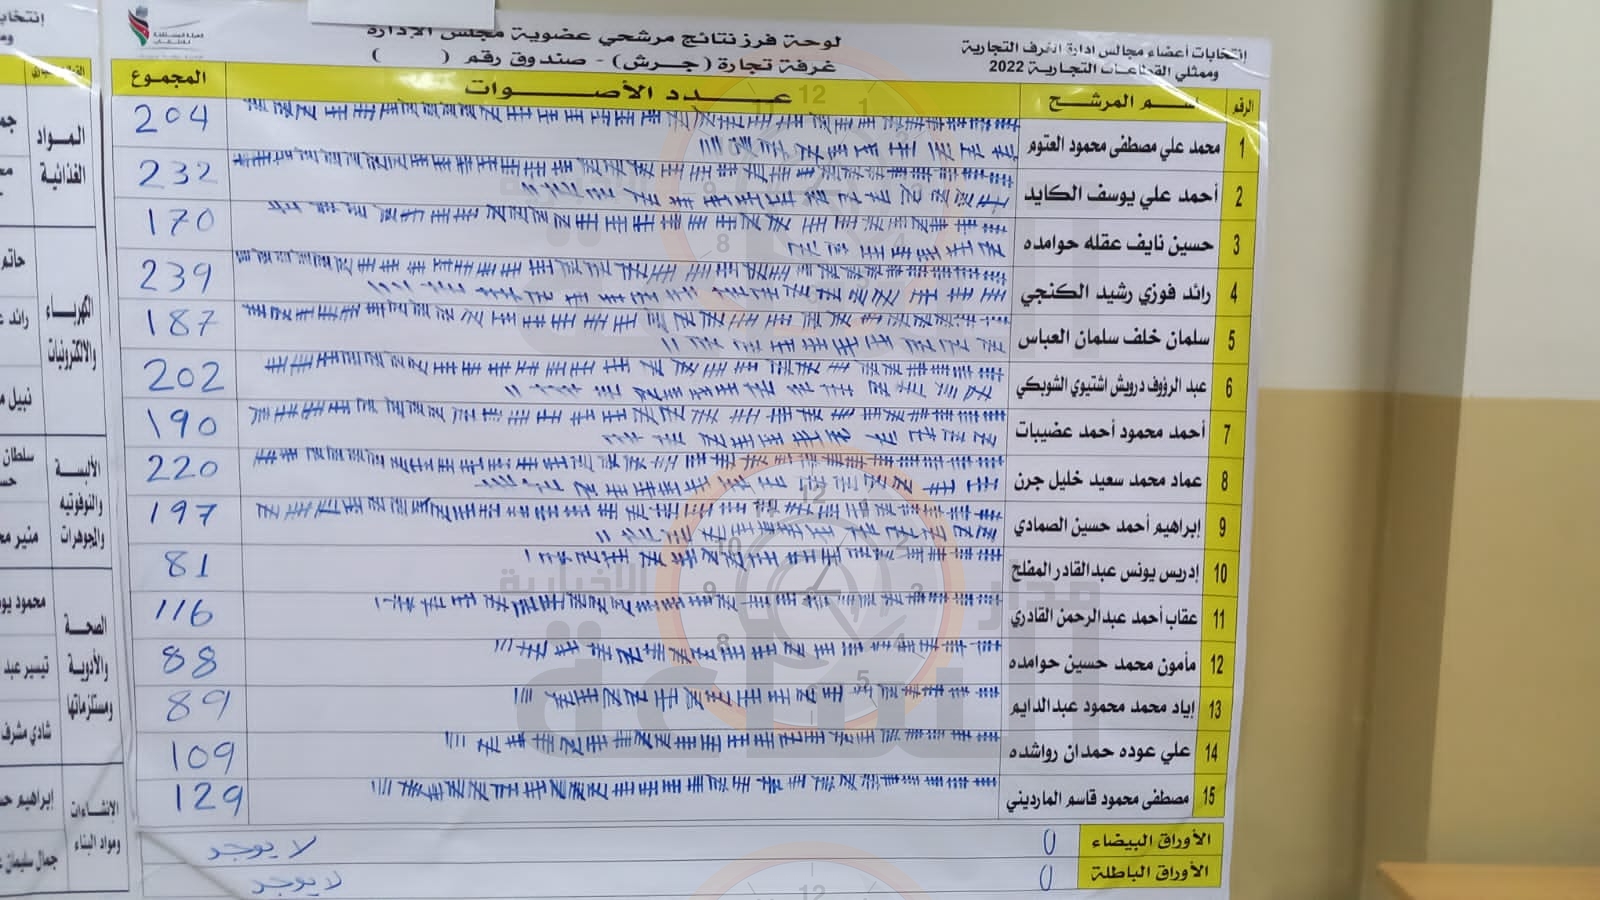 انتخابات أعضاء مجالس إدارة الغرف التجارية
وممثلي القطاعات التجارية 2022
لوحة فرز نتائج مرشحي عضوية مجلس الإدارة
غرفة تجارة (جرش) - صندوق رقم ( )
الرقم اسم المرشح عدد الأصوات المجموع
1 محمد علي مصطفى محمود العتوم 204
2 أحمد علي يوسف الكايد 232
3 حسين نايف عقله حوامده 170
4 رائد فوزي رشيد الكنجي 239
5 سلمان خلف سلمان العباس 187
6 عبد الرؤوف درويش اشتيوي الشوبكي 202
7 أحمد محمود أحمد عضيبات 190
8 عماد محمد سعيد خليل جرن 220
9 إبراهيم أحمد حسين الصمادي 197
10 إدريس يونس عبدالقادر المفلح 81
11 عقاب أحمد عبدالرحمن القادري 116
12 مأمون محمد حسين حوامده 88
13 إياد محمد محمود عبدالدايم 89
14 علي عوده حمدان رواشده 109
15 مصطفى محمود قاسم المارديني 129
الأوراق البيضاء 0 لا يوجد
الأوراق الباطلة 0 لا يوجد
المواد الغذائية
الكهرباء والالكترونيات
حاتم
رائد
نبيل
الألبسة والنوفوتيه والمجوهرات
سلطان
منير
الصحة والأدوية ومستلزماتها
محمود
تيسير عبد
شادي مشرف
الإنشاءات ومواد البناء
إبراهيم
جمال سليمان
مدار الساعة
الاخبارية